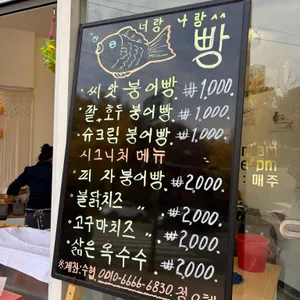 너랑 나랑^^
빵
· 씨앗 붕어빵. ₩1,000.
· 찰.호두 붕어빵. ₩1,000.
· 슈크림 붕어빵. ₩1,000.
시그니처 메뉴
· 피자 붕어빵. ₩2,000.
· 불닭치즈 〃 . ₩2,000.
· 고구마치즈 〃 . ₩2,000.
· 삶은 옥수수 . ₩2,000.
※계좌:수협. 0010-6666-6830
pm
매주